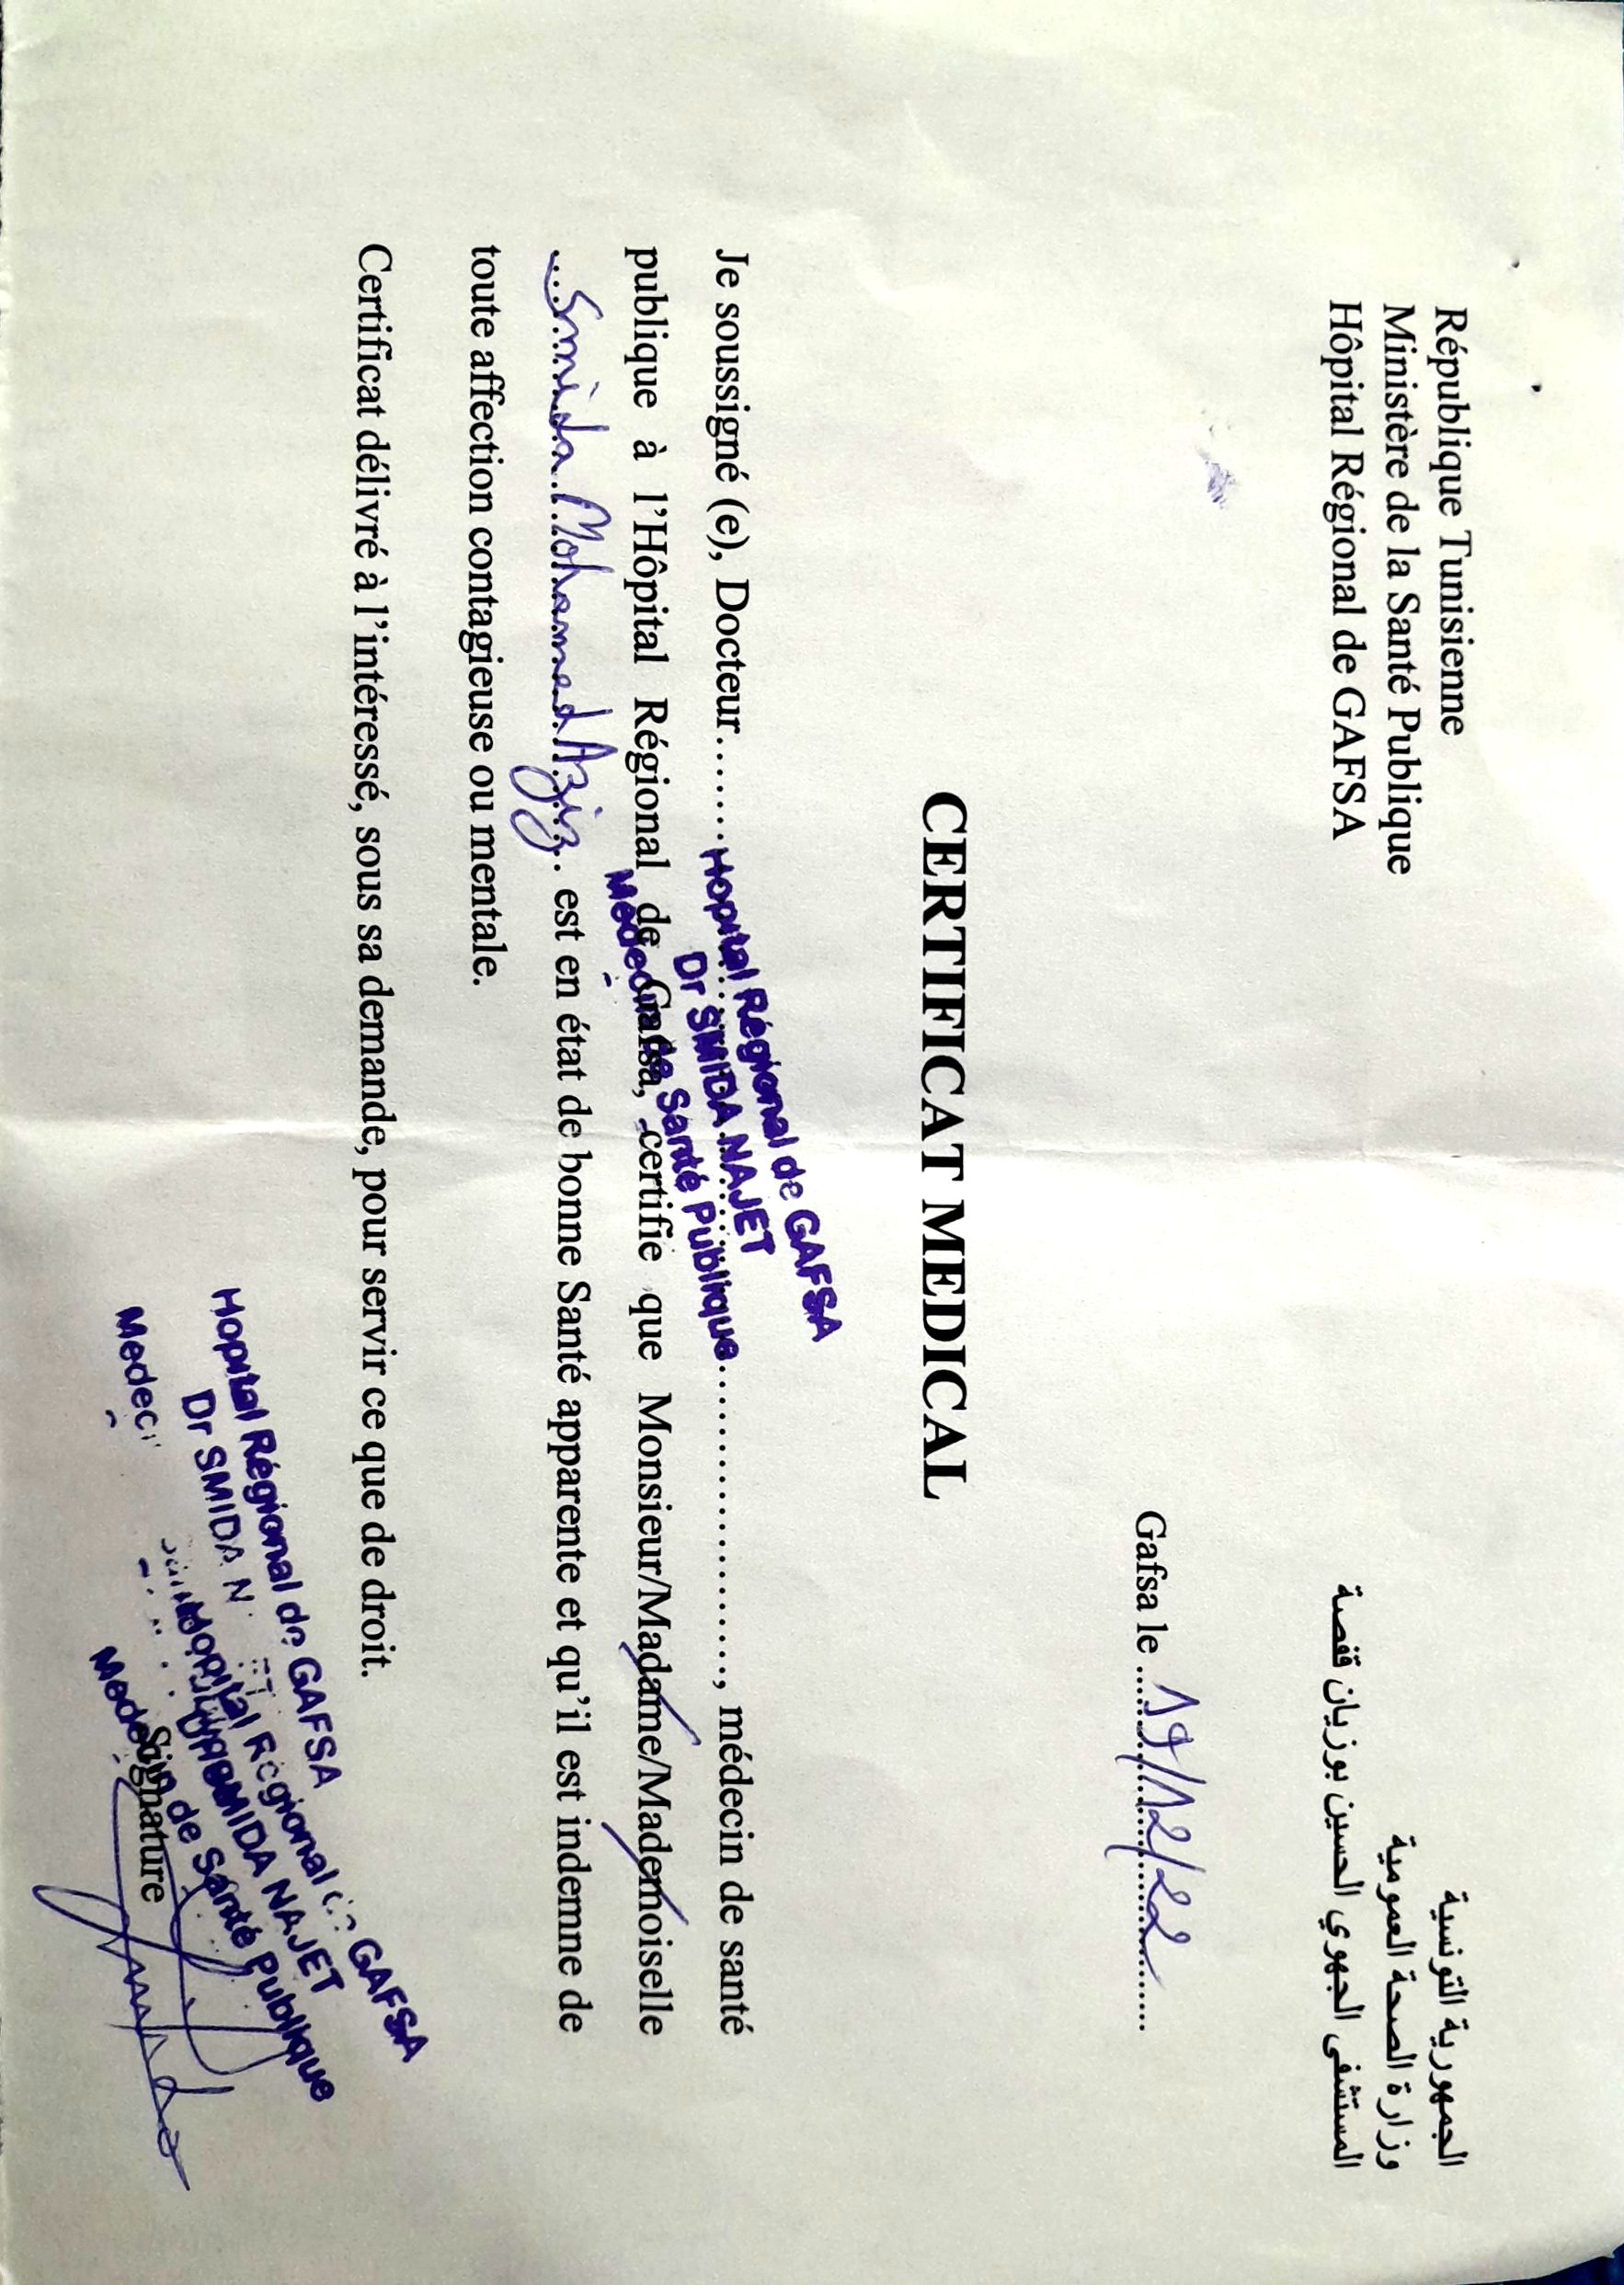 République Tunisienne
Ministère de la Santé Publique
Hôpital Régional de GAFSA
الجمهورية التونسية
وزارة الصحة العمومية
المستشفى الجهوي الحسين بوزيان قفصة
Gafsa le 19/12/22
CERTIFICAT MEDICAL
Je soussigné (e), Docteur.................................., médecin de santé
Hopital Régional de GAFSA
Dr SMIDA NAJET
Médecin de Santé Publique
publique à l'Hôpital Régional de Gafsa, certifie que Monsieur/Madame/Mademoiselle
Smida Mohamed Aziz est en état de bonne Santé apparente et qu'il est indemne de
toute affection contagieuse ou mentale.
Certificat délivré à l'intéressé, sous sa demande, pour servir ce que de droit.
Signature
Hopital Régional de GAFSA
Dr SMIDA
Hopital Régional de GAFSA
Dr SMIDA NAJET
Médecin de Santé Publique